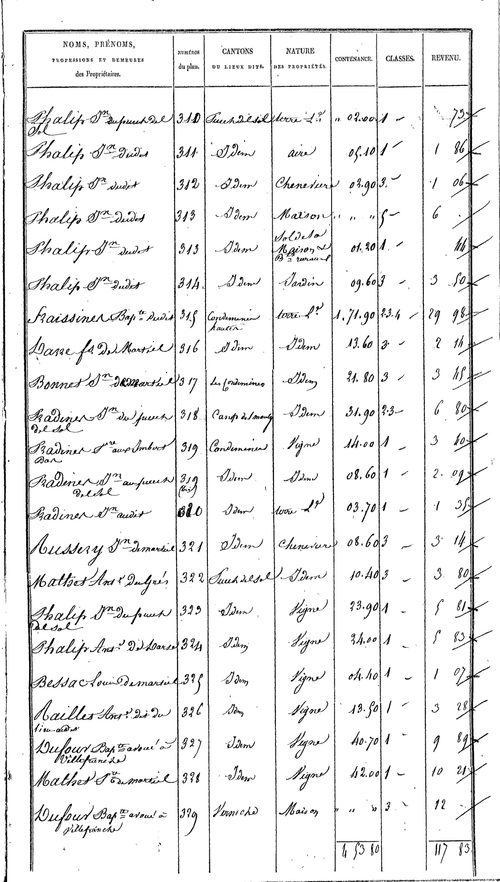 NOMS, PRÉNOMS, PROFESSIONS ET DEMEURES des Propriétaires. NUMÉROS du plan. CANTONS OU LIEUX DITS. NATURE DES PROPRIÉTÉS. CONTENANCE. CLASSES. REVENU.
Phalip Jn du puech del Sol 310 Puech del sol terre Lle " 02.00 1 73
Phalip Jn dudit 311 Idem aire 05.10 1 1 86
Phalip Jn dudit 312 Idem Cheneviere 02.90 3 1 06
Phalip Jn dudit 313 Idem Maison " " " 5 6
Phalip Jn dudit 313 Idem Sol de la Maison & 01.20 1 44
Phalip Jn dudit 314 Idem Jardin 09.60 3 3 50
Fraissines Bapte dudit 315 Condamines terre Lle 1.71.90 2.3.4 29 98
316 Idem Idem 13.60 3 2 14
Bonnet Jn de martiel 317 Les Condamines Idem 21.80 3 3 45
Radines Jn du puech del sol 318 Idem 31.90 2-3 6 80
Radines 319 Condamines Vigne 14.00 1 3 40
Radines Jn au puech del sol 319 (bis) Idem Idem 08.60 1 2 09
Radines Jn audit 320 Idem terre Lle 03.70 1 1 35
Aussery Jn de martiel 321 Idem Cheneviere 08.60 3 3 14
Mathet Ante du Grés 322 Puech del sol Idem 10.40 3 3 80
Phalip Jn du puech del sol 323 Idem Vigne 23.90 1 5 81
Phalip Ante 324 Idem Vigne 24.00 1 5 83
Bessac Louis de martiel 325 Idem Vigne 04.40 1 1 07
Railles Ante dit du 326 Idm Vigne 13.50 1 3 28
Dufour Bapte avoué à Villefranche 327 Idem Vigne 40.70 1 9 89
Mathet de martiel 328 Idem Vigne 42.00 1 10 21
Dufour Bapte avoué à Villefranche 329 Verniche Maison " " " 3 12
4 53 80 117 83